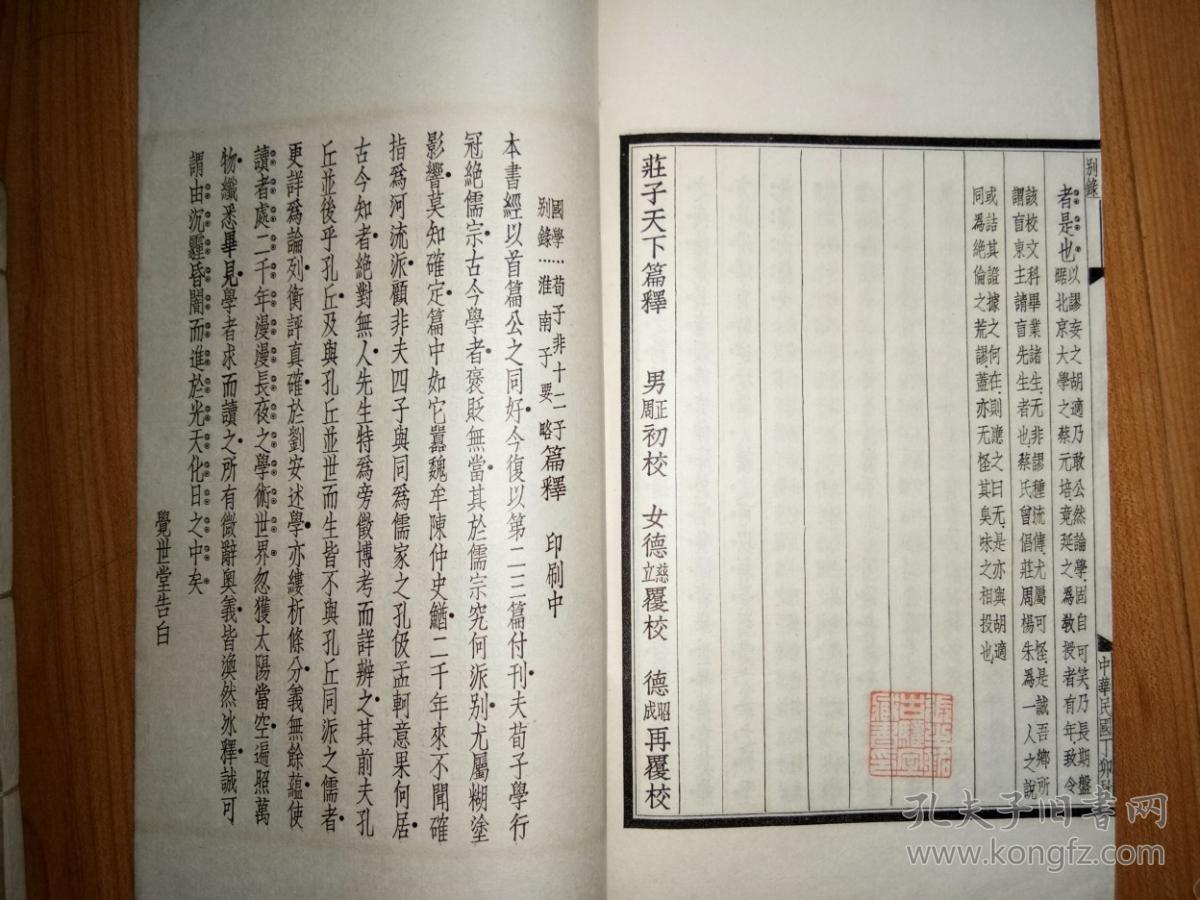 别錄
者是也以謬妄之胡適乃敢公然論學固自可笑乃長期盤
踞北京大學之蔡元培竟延之為教授者有年致令
該校文科畢業諸生无非謬種流傳尤屬可怪是誠吾鄉所
謂盲東主請盲先生者也蔡氏曾倡莊周楊朱為一人之說
或詰其證據之何在則應之曰无是亦與胡適
同為絕倫之荒謬蓋亦无怪其臭味之相投也
中華民國丁卯
莊子天下篇釋 男正周初校 女德慈立覆校 德昭成再覆校
國學別錄：荀子非十二子淮南子要略篇釋 印刷中
本書經以首篇公之同好今復以第二三篇付刊夫荀子學行
冠絕儒宗古今學者褒貶無當其於儒宗究何派別尤屬糊塗
影響莫知確定篇中如它囂魏牟陳仲史鰌二千年來不聞確
指爲河流派顧非夫四子與同爲儒家之孔伋孟軻意果何居
古今知者絕對無人先生特爲旁徵博考而詳辨之其前夫孔
丘並後乎孔丘及與孔丘並世而生皆不與孔丘同派之儒者
更詳爲論列衡評真確於劉安述學亦縷析條分義無餘蘊使
讀者處二千年漫漫長夜之學術世界忽獲太陽當空遍照萬
物纖悉畢見學者求而讀之所有微辭奥義皆渙然冰釋誠可
謂由沉霾昏闇而進於光天化日之中矣
覺世堂告白
孔夫子旧書网
www.kongfz.com